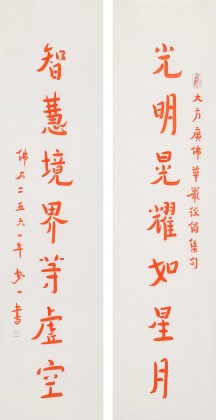 大方廣佛華嚴經偈集句
光明晃耀如星月
智慧境界等虛空
佛曆二五六一年 梦一書